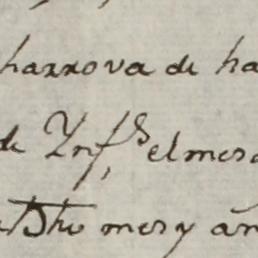 harrova de ha
de Ynfs el mes
Dho mes y añ